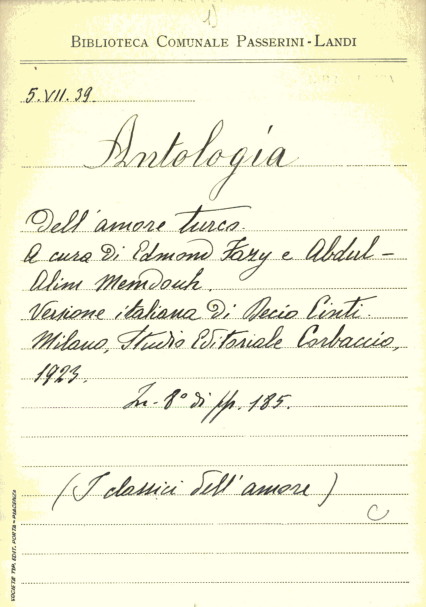 1)
BIBLIOTECA COMUNALE PASSERINI-LANDI
5.VII.39.
Antologia
dell'amore turco.
A cura di Edmond Fazy e Abdul-
Alim Memdouh.
Versione italiana di Decio Cinti.
Milano, Studio Editoriale Corbaccio,
1923.
In-8° di pp. 185.
(I classici dell'amore)
C
SOCIETÀ TIP. EDIT. PORTA - PIACENZA